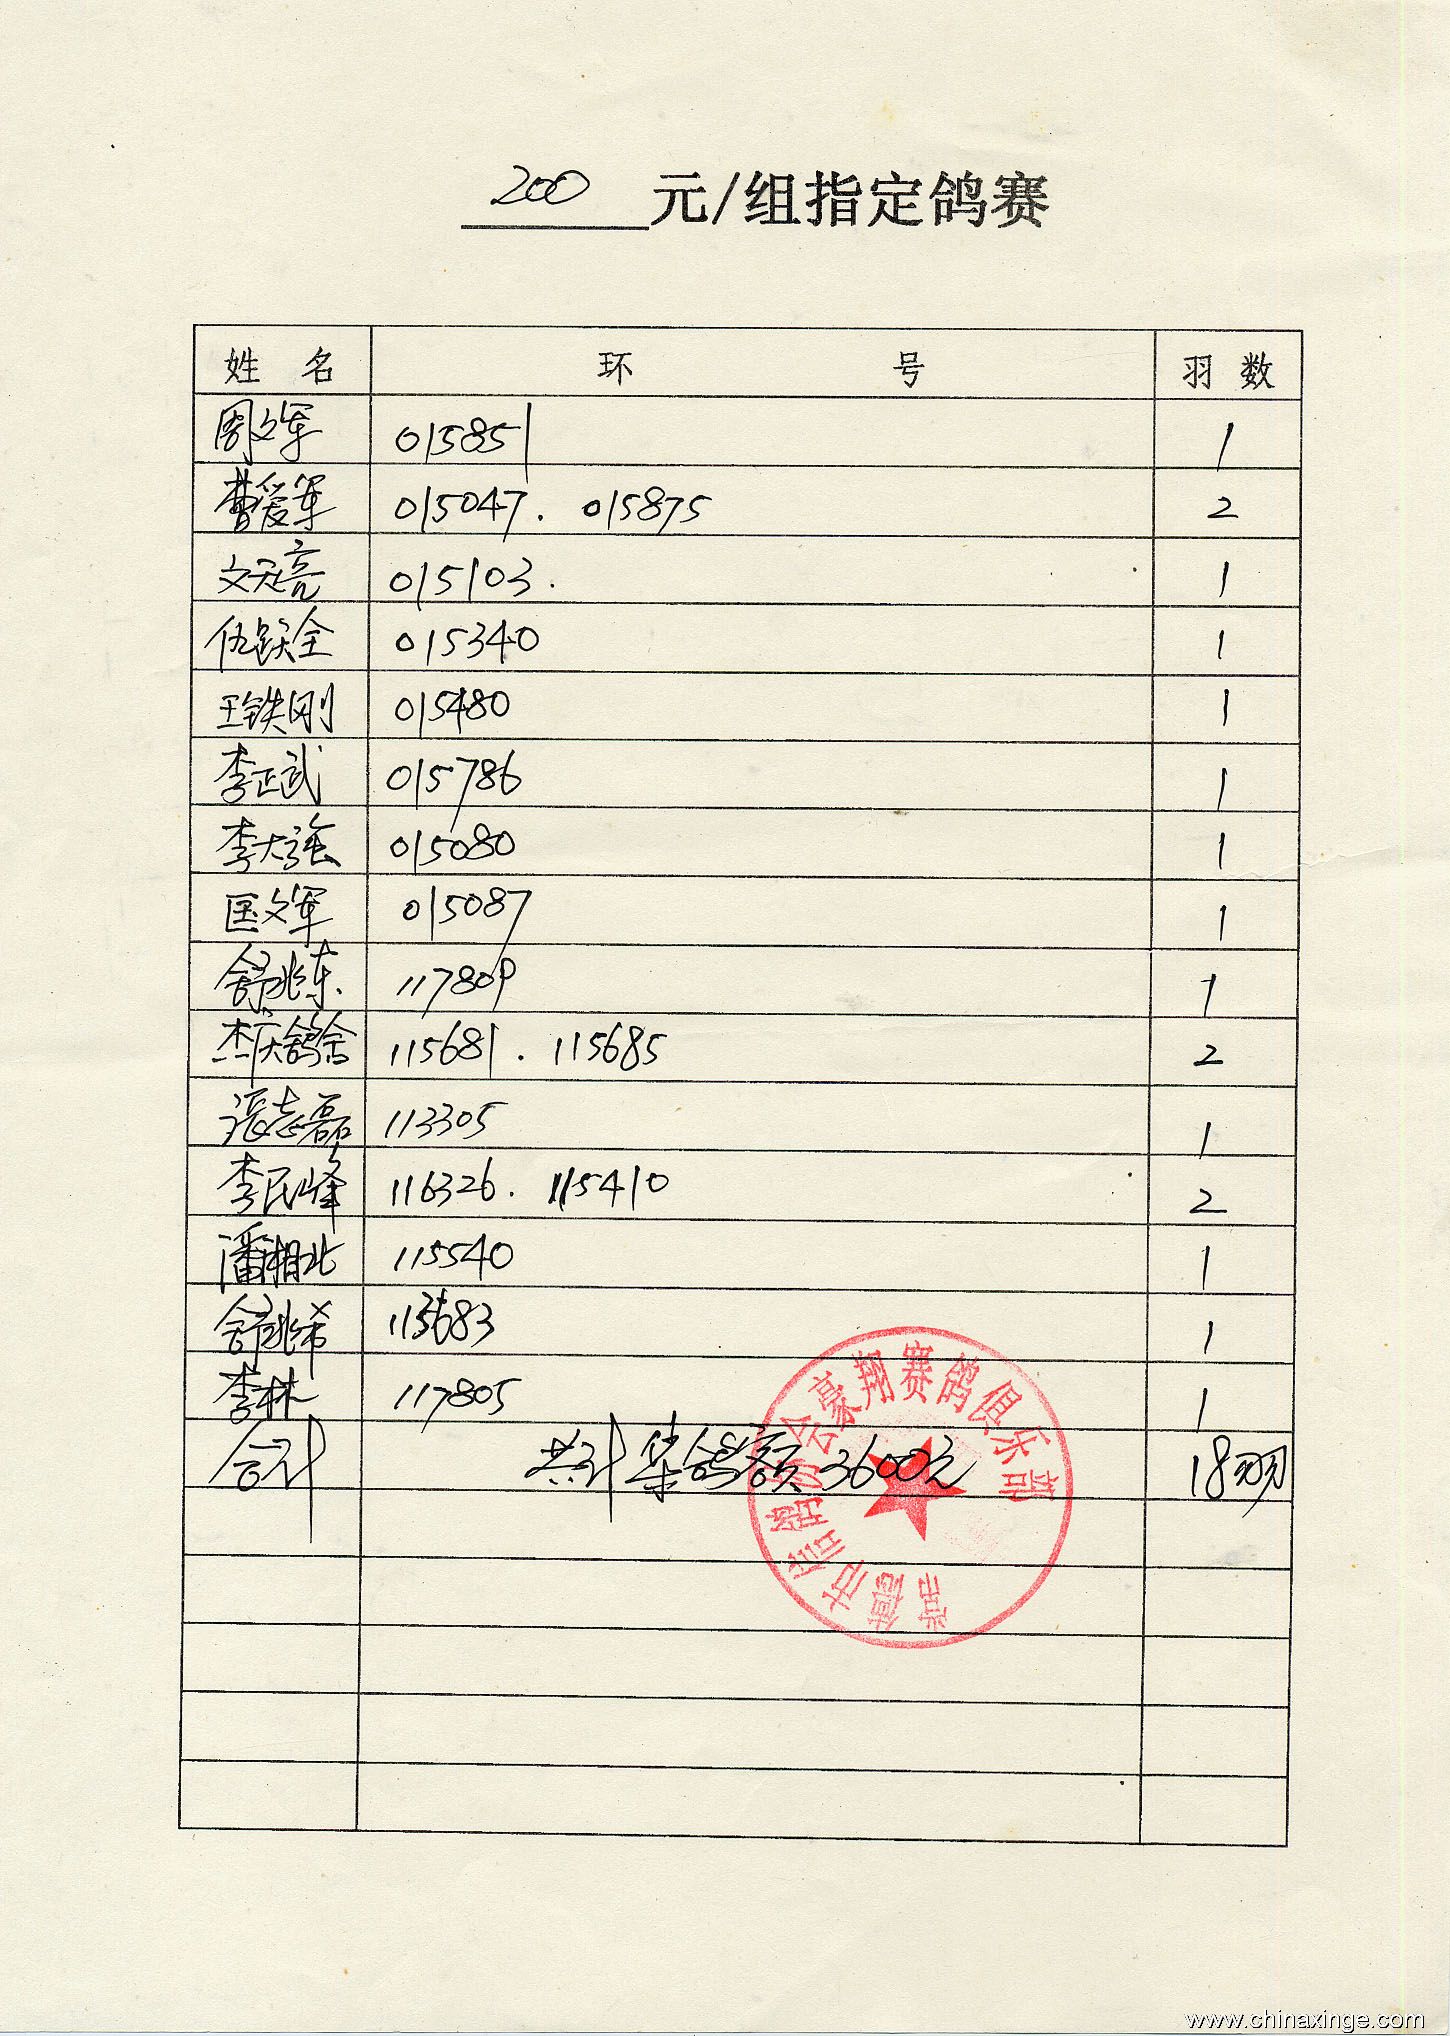 200 元/组指定鸽赛
姓 名 环 号 羽 数
周文军 015851 1
曹爱军 015047. 015875 2
文天亮 015103. 1
仇跃全 015340 1
王铁刚 015480 1
李正武 015786 1
李大强 015080 1
匡文军 015087 1
舒兆东 117809 1
杰庆鸽舍 115681. 115685 2
张志磊 113305 1
李民峰 116326. 115410 2
潘湘北 115540 1
舒兆希 115683 1
李林 117805 1
合计 共计 集鸽额 3600元 18羽
常德市信鸽协会豪翔赛鸽俱乐部
www.chinaxinge.com